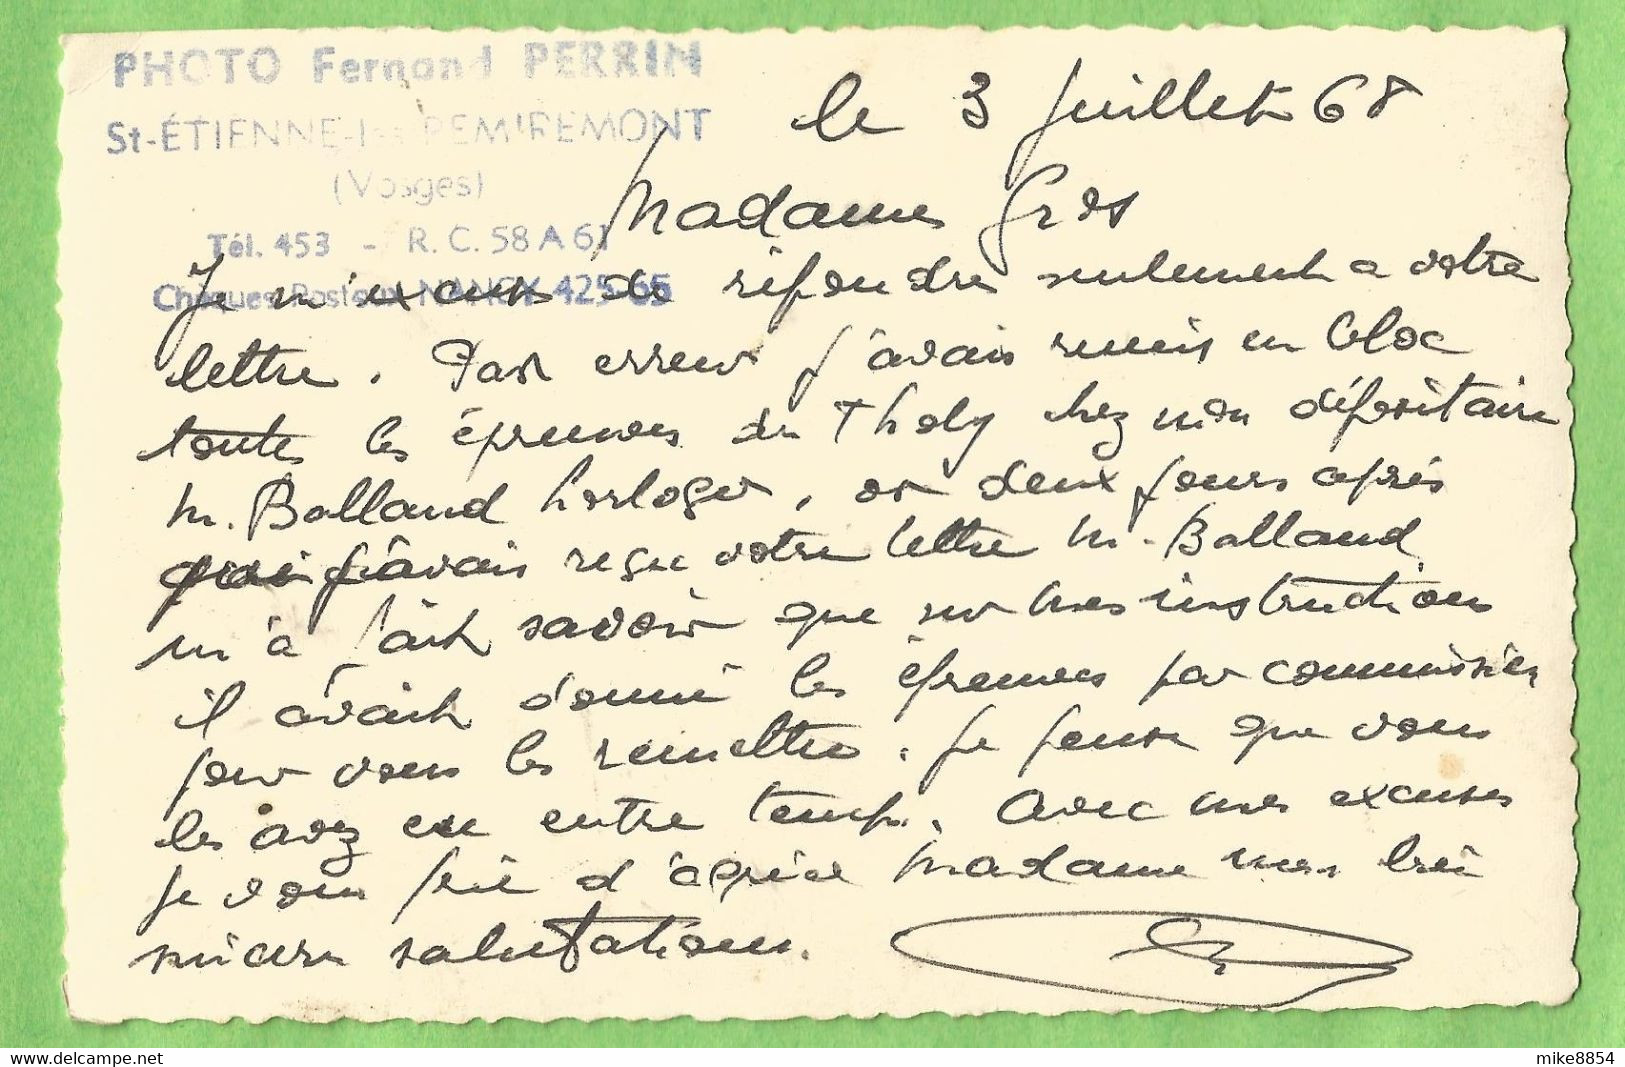 PHOTO Fernand PERRIN
St-ÉTIENNE-les-REMIREMONT
(Vosges)
Tél. 453 - R. C. 58 A 61
Chèques Postaux NANCY 425-65
le 3 juillet 68
Madame Gros
Je m'excuse de répondre seulement a votre
lettre. Par erreur j'avais remis en bloc
toutes les épreuves du Tholy chez mon dépositaire
M. Balland horloger, or deux jours après
que j'avais reçu votre lettre M. Balland
m'a fait savoir que sur mes instructions
il avait donné les épreuves par commission
pour vous les remettre. Je pense que vous
les avez eu entre temps. Avec mes excuses
je vous prie d'agréer Madame mes
sincères salutations.
mike8854